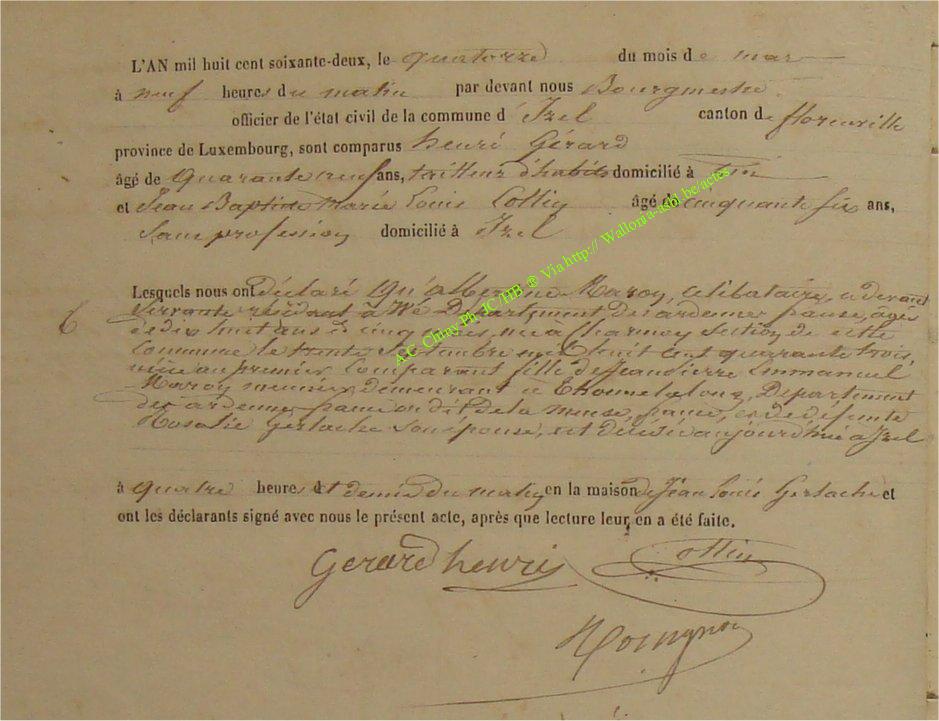 L'AN mil huit cent soixante-deux, le quatorze du mois de mars
à neuf heures du matin par devant nous Bourgmestre
officier de l'état civil de la commune d'Izel canton de florenville
province de Luxembourg, sont comparus henri Gérard
âgé de quarante neuf ans, tailleur d'habits domicilié à
et Jean Baptiste Marie Louis Collin âgé de cinquante six ans,
Sans profession domicilié à Izel
Lesquels nous ont déclaré Maroy, célibataire, ci devant
servante Département des ardennes, agée
de dix huit ans cinq mois, née à section de cette
Commune le trente Septembre mil huit cent quarante trois,
nièce au premier Comparant fille de Jean Pierre Emmanuel
Maroy meunier demeurant à Thonnelalong, Département
des ardennes de la meuse, et de défunte
Rosalie Gerlache Son épouse, est décédée aujourd'hui à Izel
6
à quatre heures et demie du matin en la maison de Jean Louis Gerlache et
ont les déclarants signé avec nous le présent acte, après que lecture leur en a été faite.
Gerard henri Collin
A.C. Chiny Ph. JC/HB ® Via http:// Wallonia-asbl.be/actes